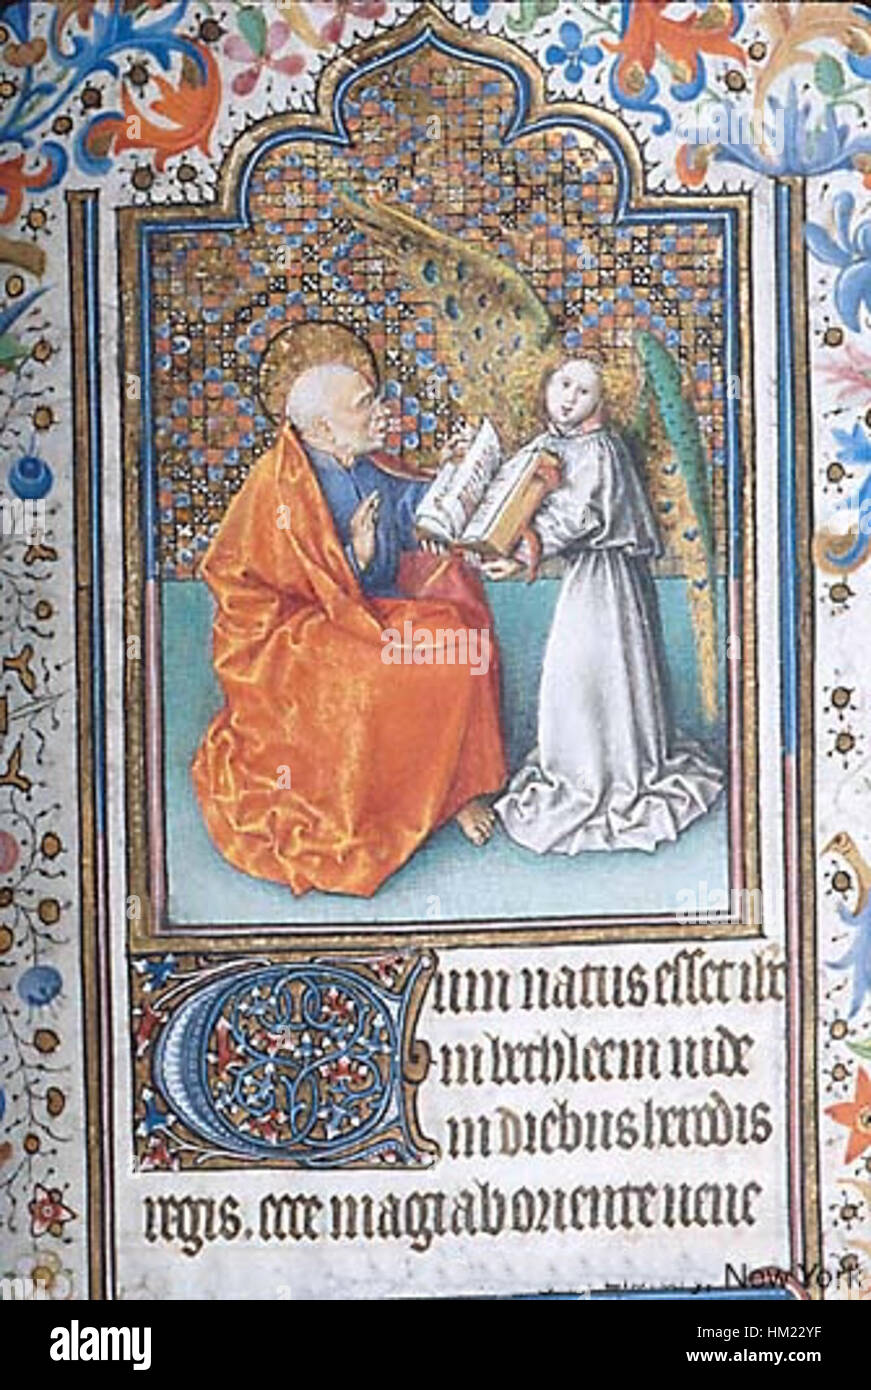 Cum natus esset ihc
in bethleem iude
in diebus herodis
regis. ecce magi ab oriente uene
New York
alamy
Image ID: HM22YF
www.alamy.com